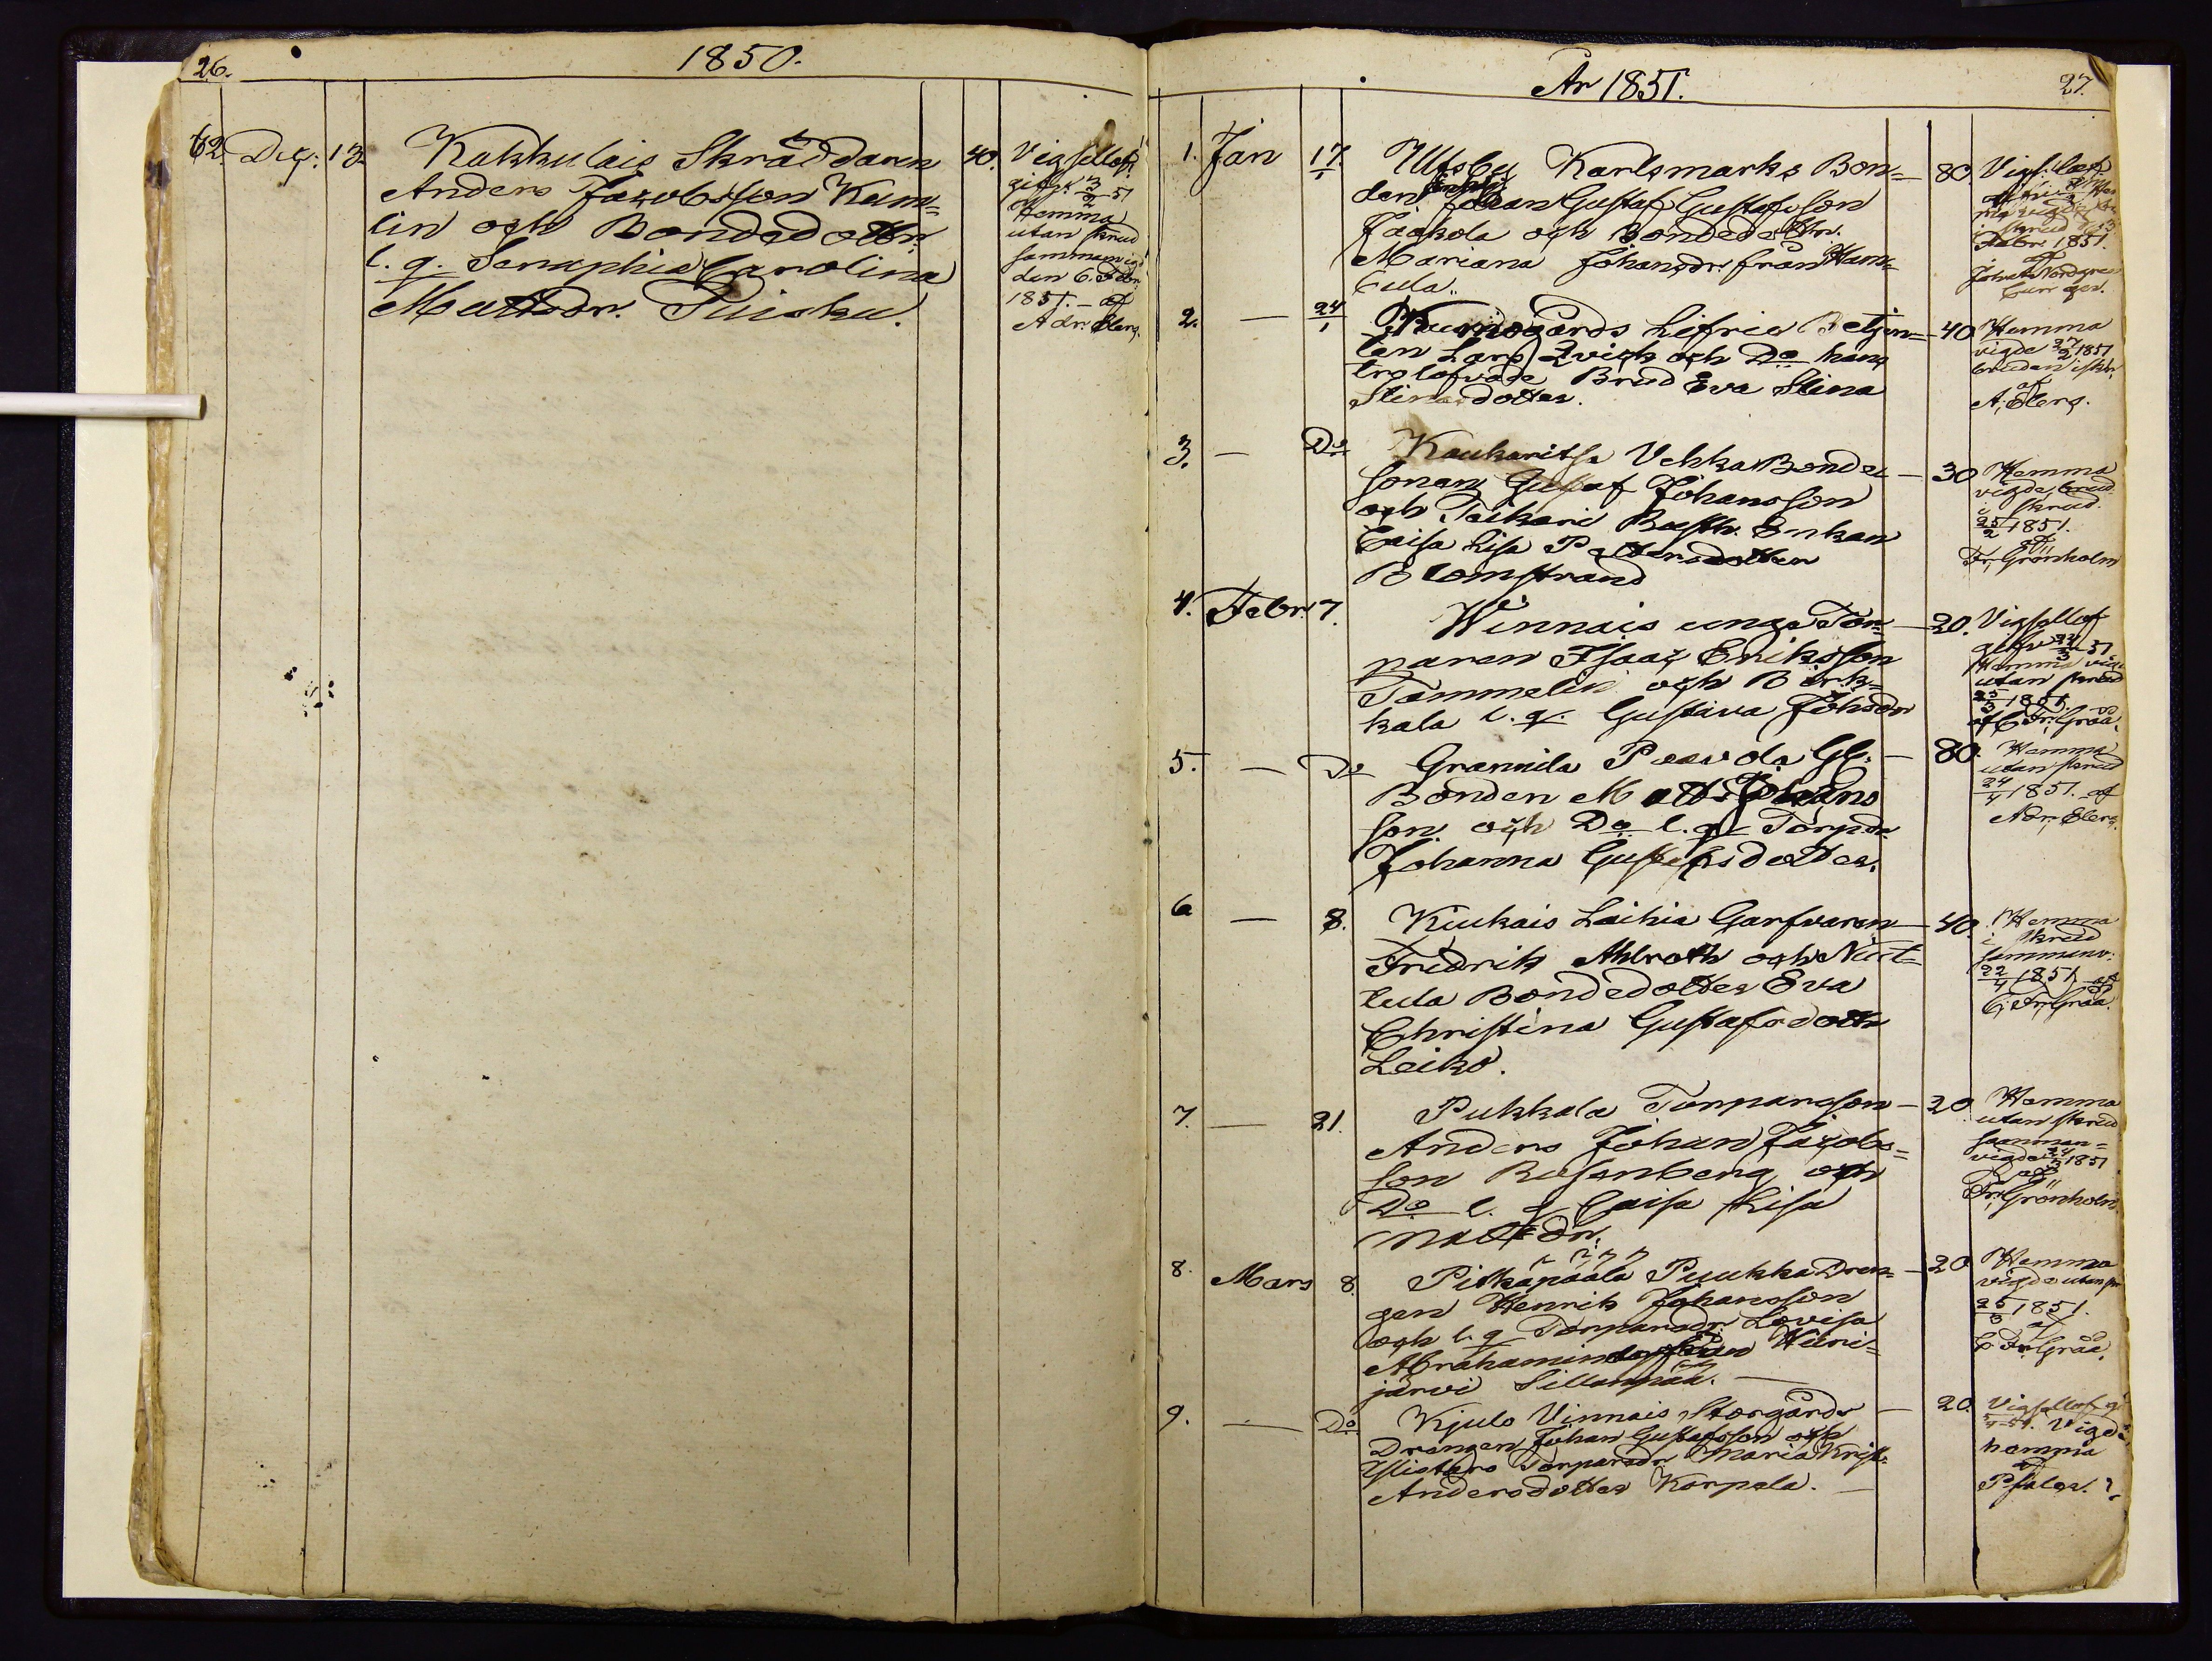 26.
1850.
62. Dec: 13. Kakkulais Skräddaren 40.
Anders Jacobsson Kum=
lin och Bondedottr.
l. q. Seraphia Carolina
Mattsdr. Puisku.
Vigsellof
gifv. 3/2 51
Hemma
utan skrud
sammanvig.
den 6. Febr.
1851. - af
Adr. Eberg.
År 1851.
27.
1. Jan 17. Ulfsby Karlsmarks Bon= 80.
den Johan Gustaf Gustafsson
Jaakola och Bondedottr.
Mariana Johansdr. från Ham=
Vigs. lof
i skrud d. 13
Febr. 1851.
af
Johan Nordgren
2. — 24/1 Lifrie Betjen= 40
ten Lars Qvick och Do hans
trolofvade Brud Eva Stina
Stinasdotter.
Hemma
vigde 27/2 1851
bruden i skr.
af
A. Eberg.
3. — Do Kaukaritsa Vehka Bonde — 30
sonen Gustaf Johansson
och Teikari Busth. Enkan
Caisa Lisa Pettersdotter
Blomstrand
Hemma
vigde, brud
i skrud.
25/2 1851.
af
Fr. Grönholm
4. Febr. 7. Winnais unga Tor= 20.
paren Isaac Eriksson
Tammelin och Birk=
kala l. q. Gustava Johsdr
Vigsellof
gifv 24/3 51
Hemma vig.
utan skrud
25/3 1851.
af C. Fr. Gråå.
5. — Do Grannila Paavola Gl. — 80.
Bonden Matts Johans
son och Do l. q. Torpdr
Johanna Gustafsdotter.
Hemma
utan skrud
24/4 1851. af
Adr. Eberg.
6 — 8. Kiukais Laihia Garfvaren — 40.
Fridrik Ahlroth och Niut=
tula Bondedotter Eva
Christina Gustafsdottr
Leiko.
Hemma
i skrud
sammanv:
22/4 1851 af
C. Fr. Gråå.
7. — 21. Pukkala Torparson — 20
Anders Johan Jacobs=
son Rosenberg och
Do l. q. Caisa Lisa
Mattsdr.
Hemma
utan skrud
samman=
vigde 24/3 1851
af
Fr. Grönholm.
8. Mars 8. Pitkäpäälä Puukka Dren= — 20
gen Henrik Johansson
och l. q Torparedr. Lovisa
järvi Sillanpää. —
Hemma
vigde utan
25/3 1851.
af
C Fr. Gråå.
9. — Do Kjulo Vinnais Storgårds — 20.
Drängen Johan Gustafsson och
Ylistaro Torparedr Maria Krist.
Andersdotter Korpela. —
Vigsellof
Vigde
hemma
af